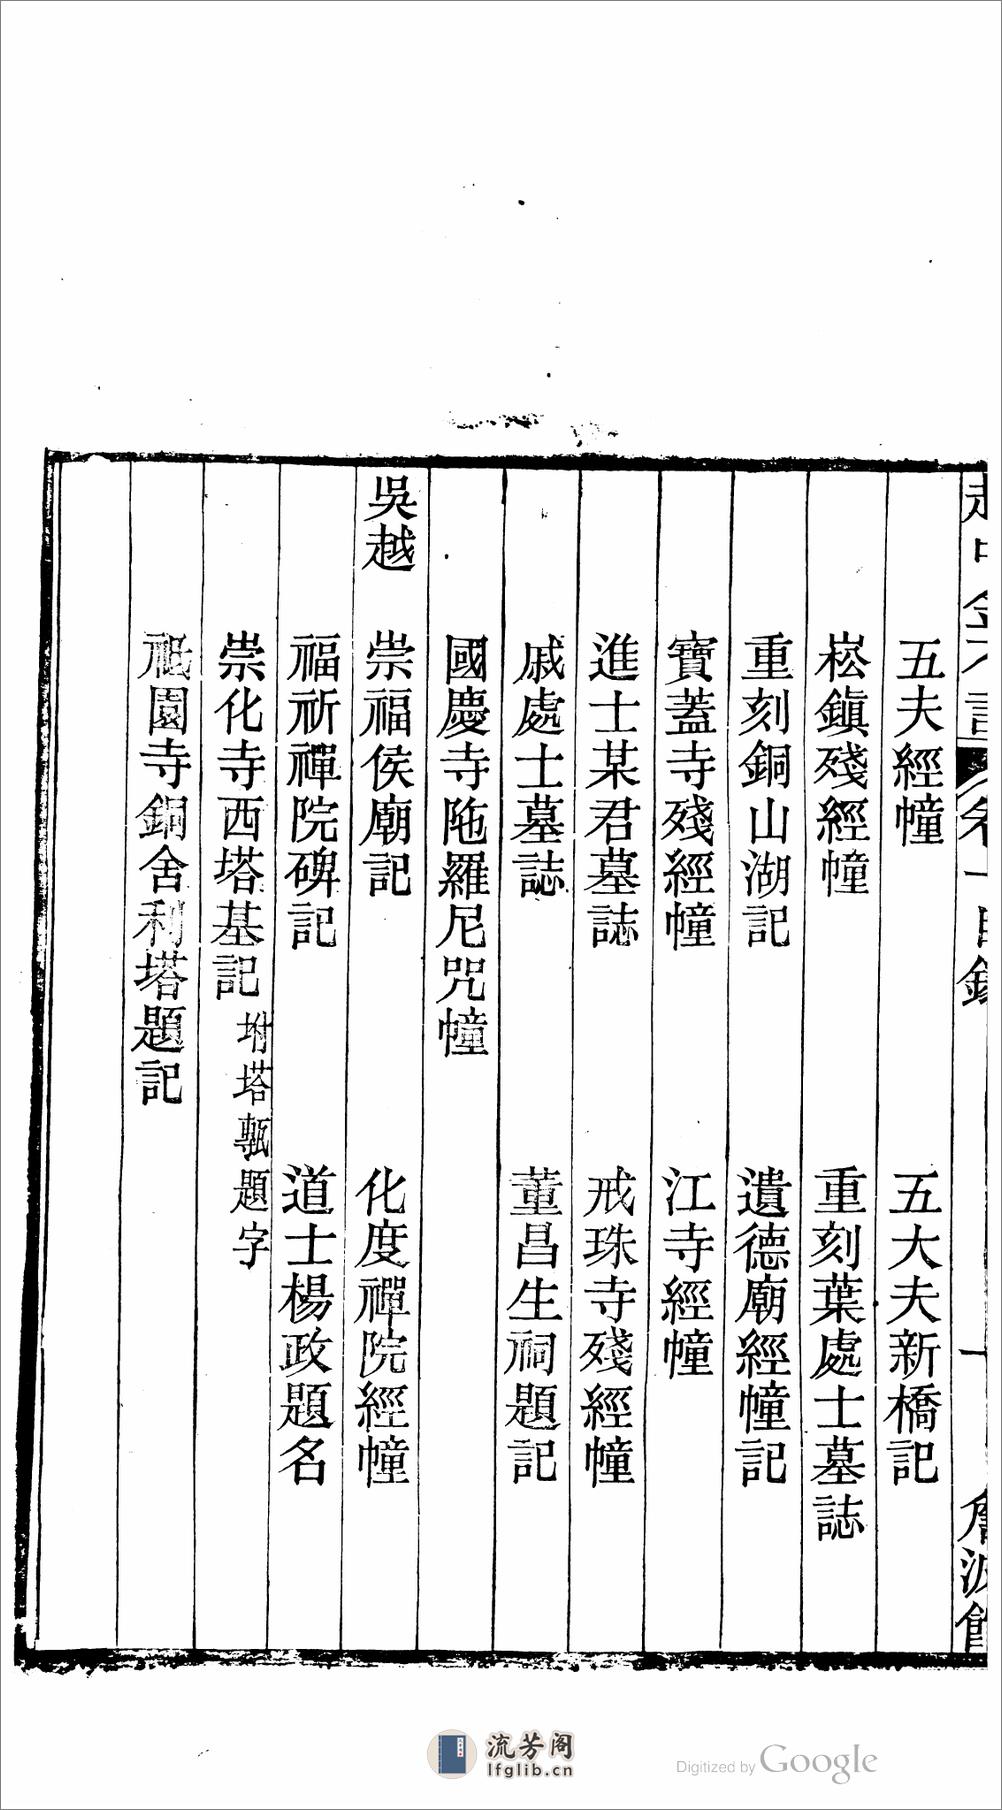 越中金石記 卷一目錄 十 詹波館
五夫經幢 五大夫新橋記
崧鎭殘經幢 重刻葉處士墓誌
重刻銅山湖記 遺德廟經幢記
寶蓋寺殘經幢 江寺經幢
進士某君墓誌 戒珠寺殘經幢
戚處士墓誌 董昌生祠題記
國慶寺陁羅尼咒幢
吳越
崇福侯廟記 化度禪院經幢
福祈禪院碑記 道士楊政題名
崇化寺西塔基記 坿塔甎題字
祗園寺銅舍利塔題記
流芳阁
lfglib.cn
Digitized by Google